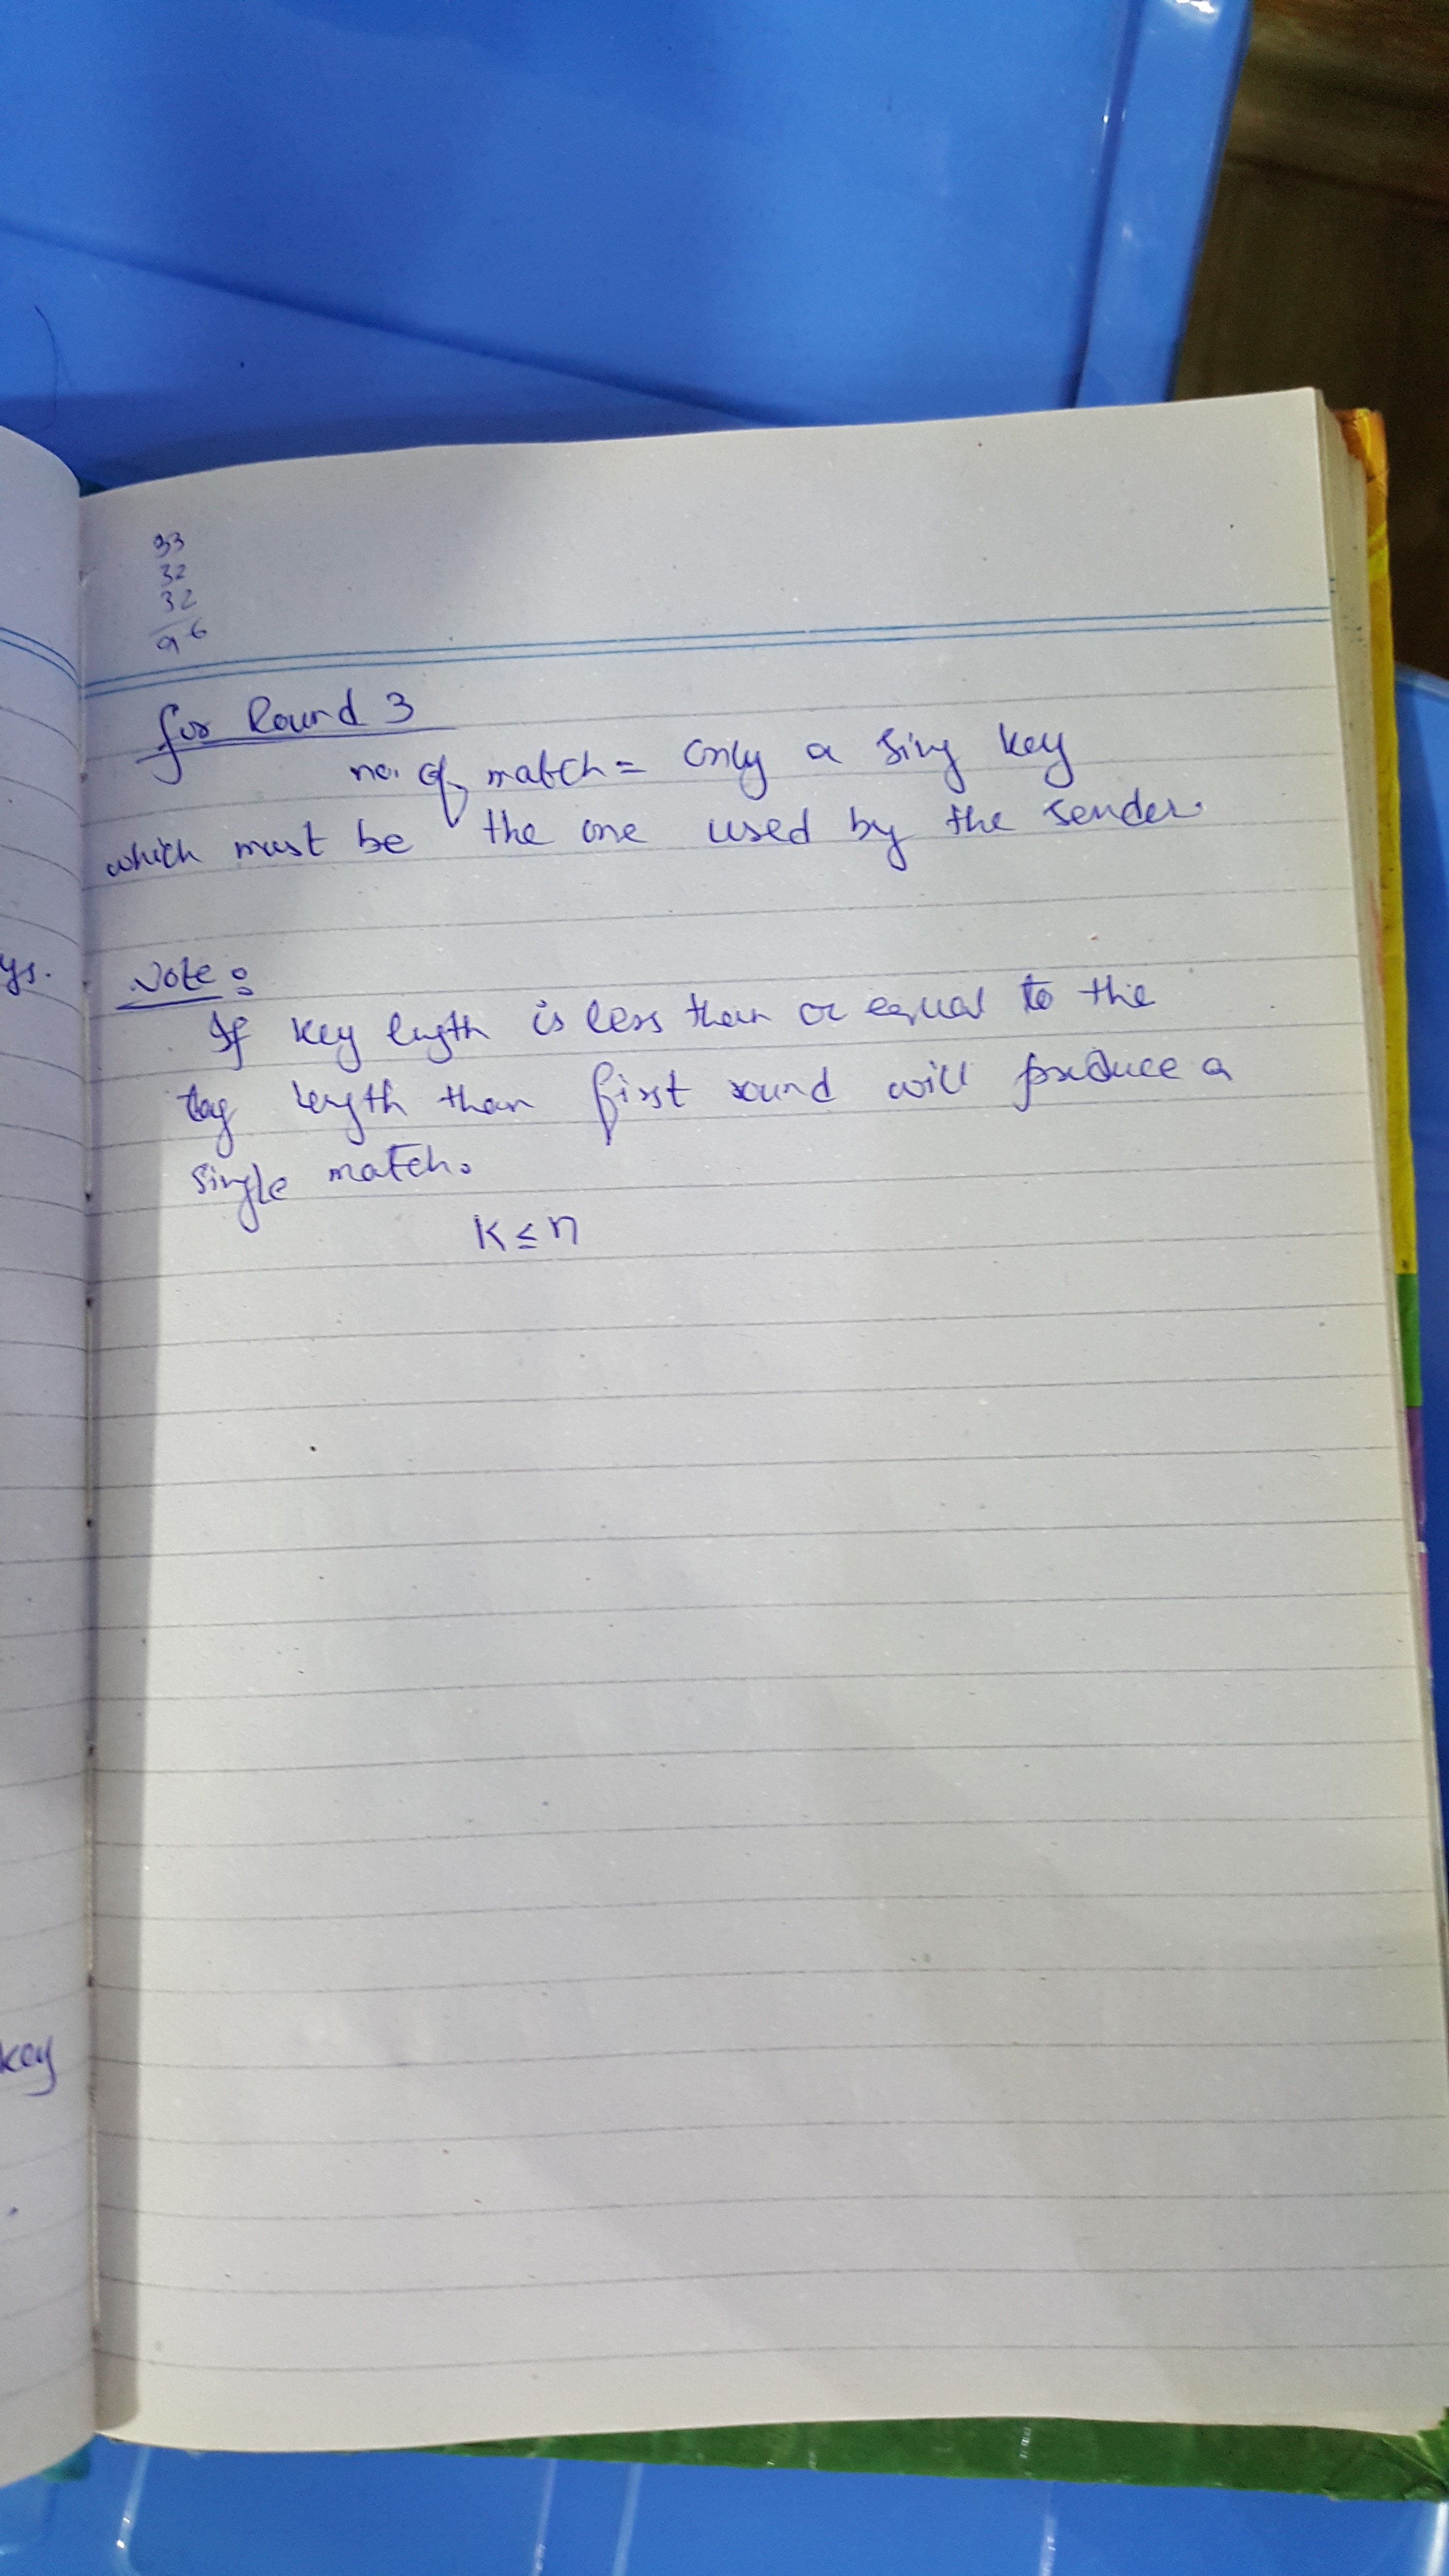 33
32
32
96
for Round 3
no. of match = only a sing key
which must be the one used by the sender.
ys.
Note:
If key length is less than or equal to the
tag length than first round will produce a
single match.
K ≤ n
key